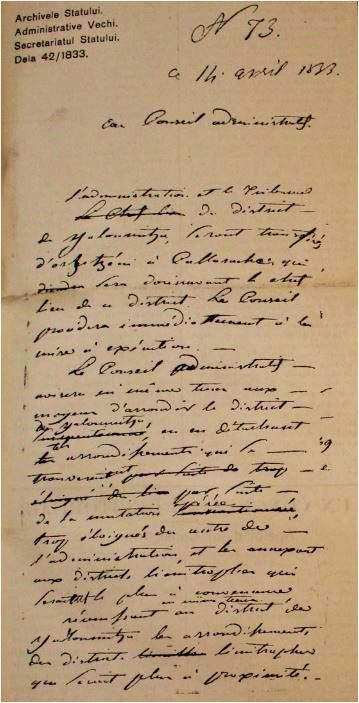 Archivele Statului.
Administrative Vechi.
Secretariatul Statului.
Dela 42/1833.
N 73.
ce 14 avril 1833.
au Conseil administratif.
L'administration et le Tribunal
du district
de Yalomnitza, seront transférés
d'Orézéni à Callarache, qui
sera dorénavant le chef
lieu de ce district. Le Conseil
procédera immédiatement à la
mise à exécution. —
Le Conseil administratif
avisera en même tems aux
moyens d'arrondir le district
de Yalomnitza, en en détachant
les arrondissements qui se
trouveraient par suite de trop
éloignés de par suite
de la mutation
trop éloignés du centre de
l'administration, et les annexant
aux districts limitrophes qui
seraient le plus à convenance
en même tems
réunissant au district de
Yalomnitza les arrondissements
des districts limitrophes
qui seront plus à proximité. —